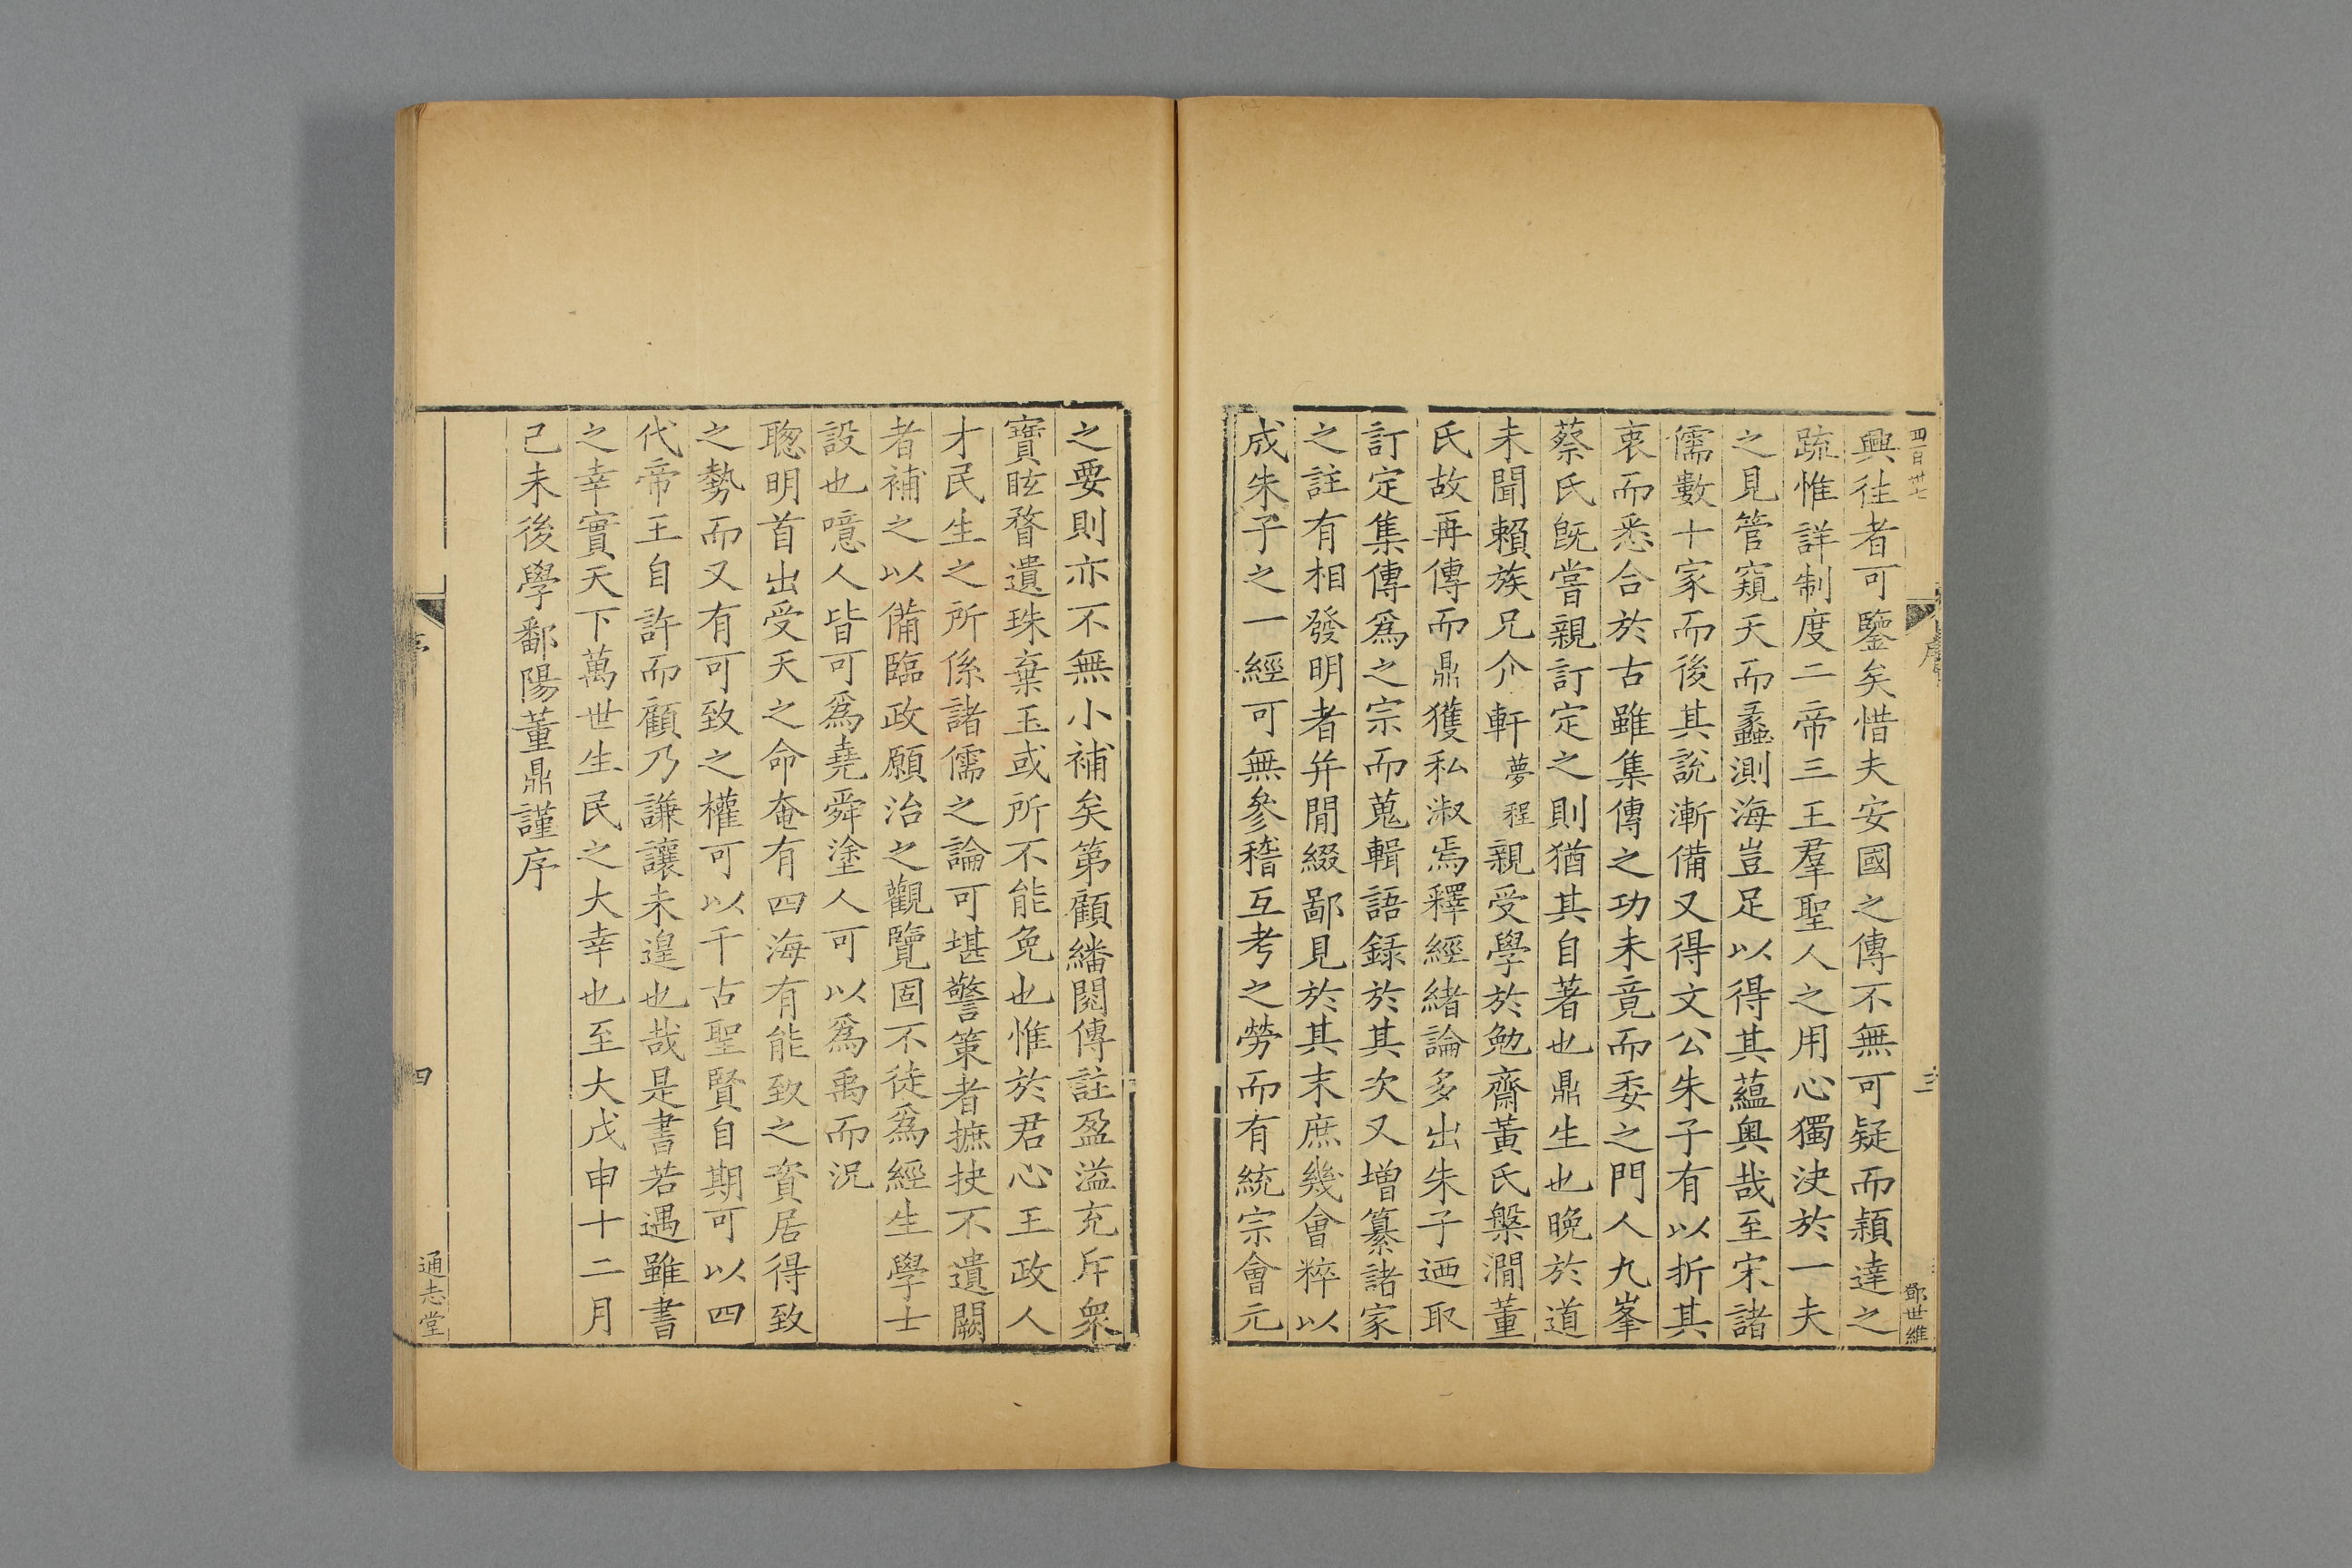 四百卅七
興往者可鑒矣惜夫安國之傳不無可疑而穎達之
疏惟詳制度二帝三王羣聖人之用心獨決於一夫
之見管窺天而蠡測海豈足以得其蘊奥哉至宋諸
儒數十家而後其說漸備又得文公朱子有以折其
衷而悉合於古雖集傳之功未竟而委之門人九峯
蔡氏旣嘗親訂定之則猶其自著也鼎生也晚於道
未聞賴族兄介軒夢程親受學於勉齋黃氏槃澗董
氏故再傳而鼎獲私淑焉釋經緒論多出朱子迺取
訂定集傳爲之宗而蒐輯語録於其次又增纂諸家
之註有相發明者并閒綴鄙見於其末庶幾會粹以
成朱子之一經可無參稽互考之勞而有統宗會元
三
鄧世維
之要則亦不無小補矣第顧繙閱傳註盈溢充斥衆
寶眩瞀遺珠棄玉或所不能免也惟於君心王政人
才民生之所係諸儒之論可堪警策者摭抉不遺闕
者補之以備臨政願治之觀覽固不徒爲經生學士
設也噫人皆可爲堯舜塗人可以爲禹而況
聦明首出受天之命奄有四海有能致之資居得致
之勢而又有可致之權可以千古聖賢自期可以四
代帝王自許而顧乃謙讓未遑也哉是書若遇雖書
之幸實天下萬世生民之大幸也至大戊申十二月
己未後學鄱陽董鼎謹序
四
通志堂